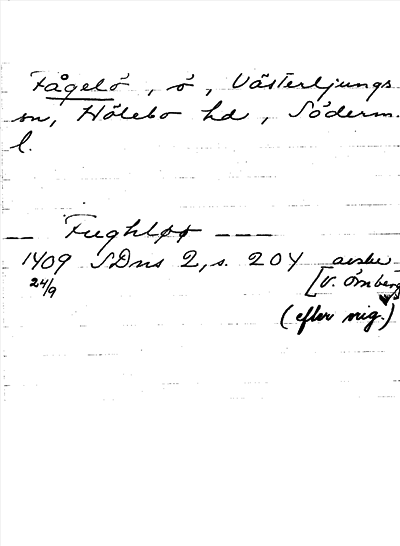 Fågelö, ö, Västerljungs
sn, Hölebo hd, Söderm.
l.
— Fughløø — — —
1409 SDns 2, s. 204 avskr
24/9 [V. Örnberg
(efter orig.)